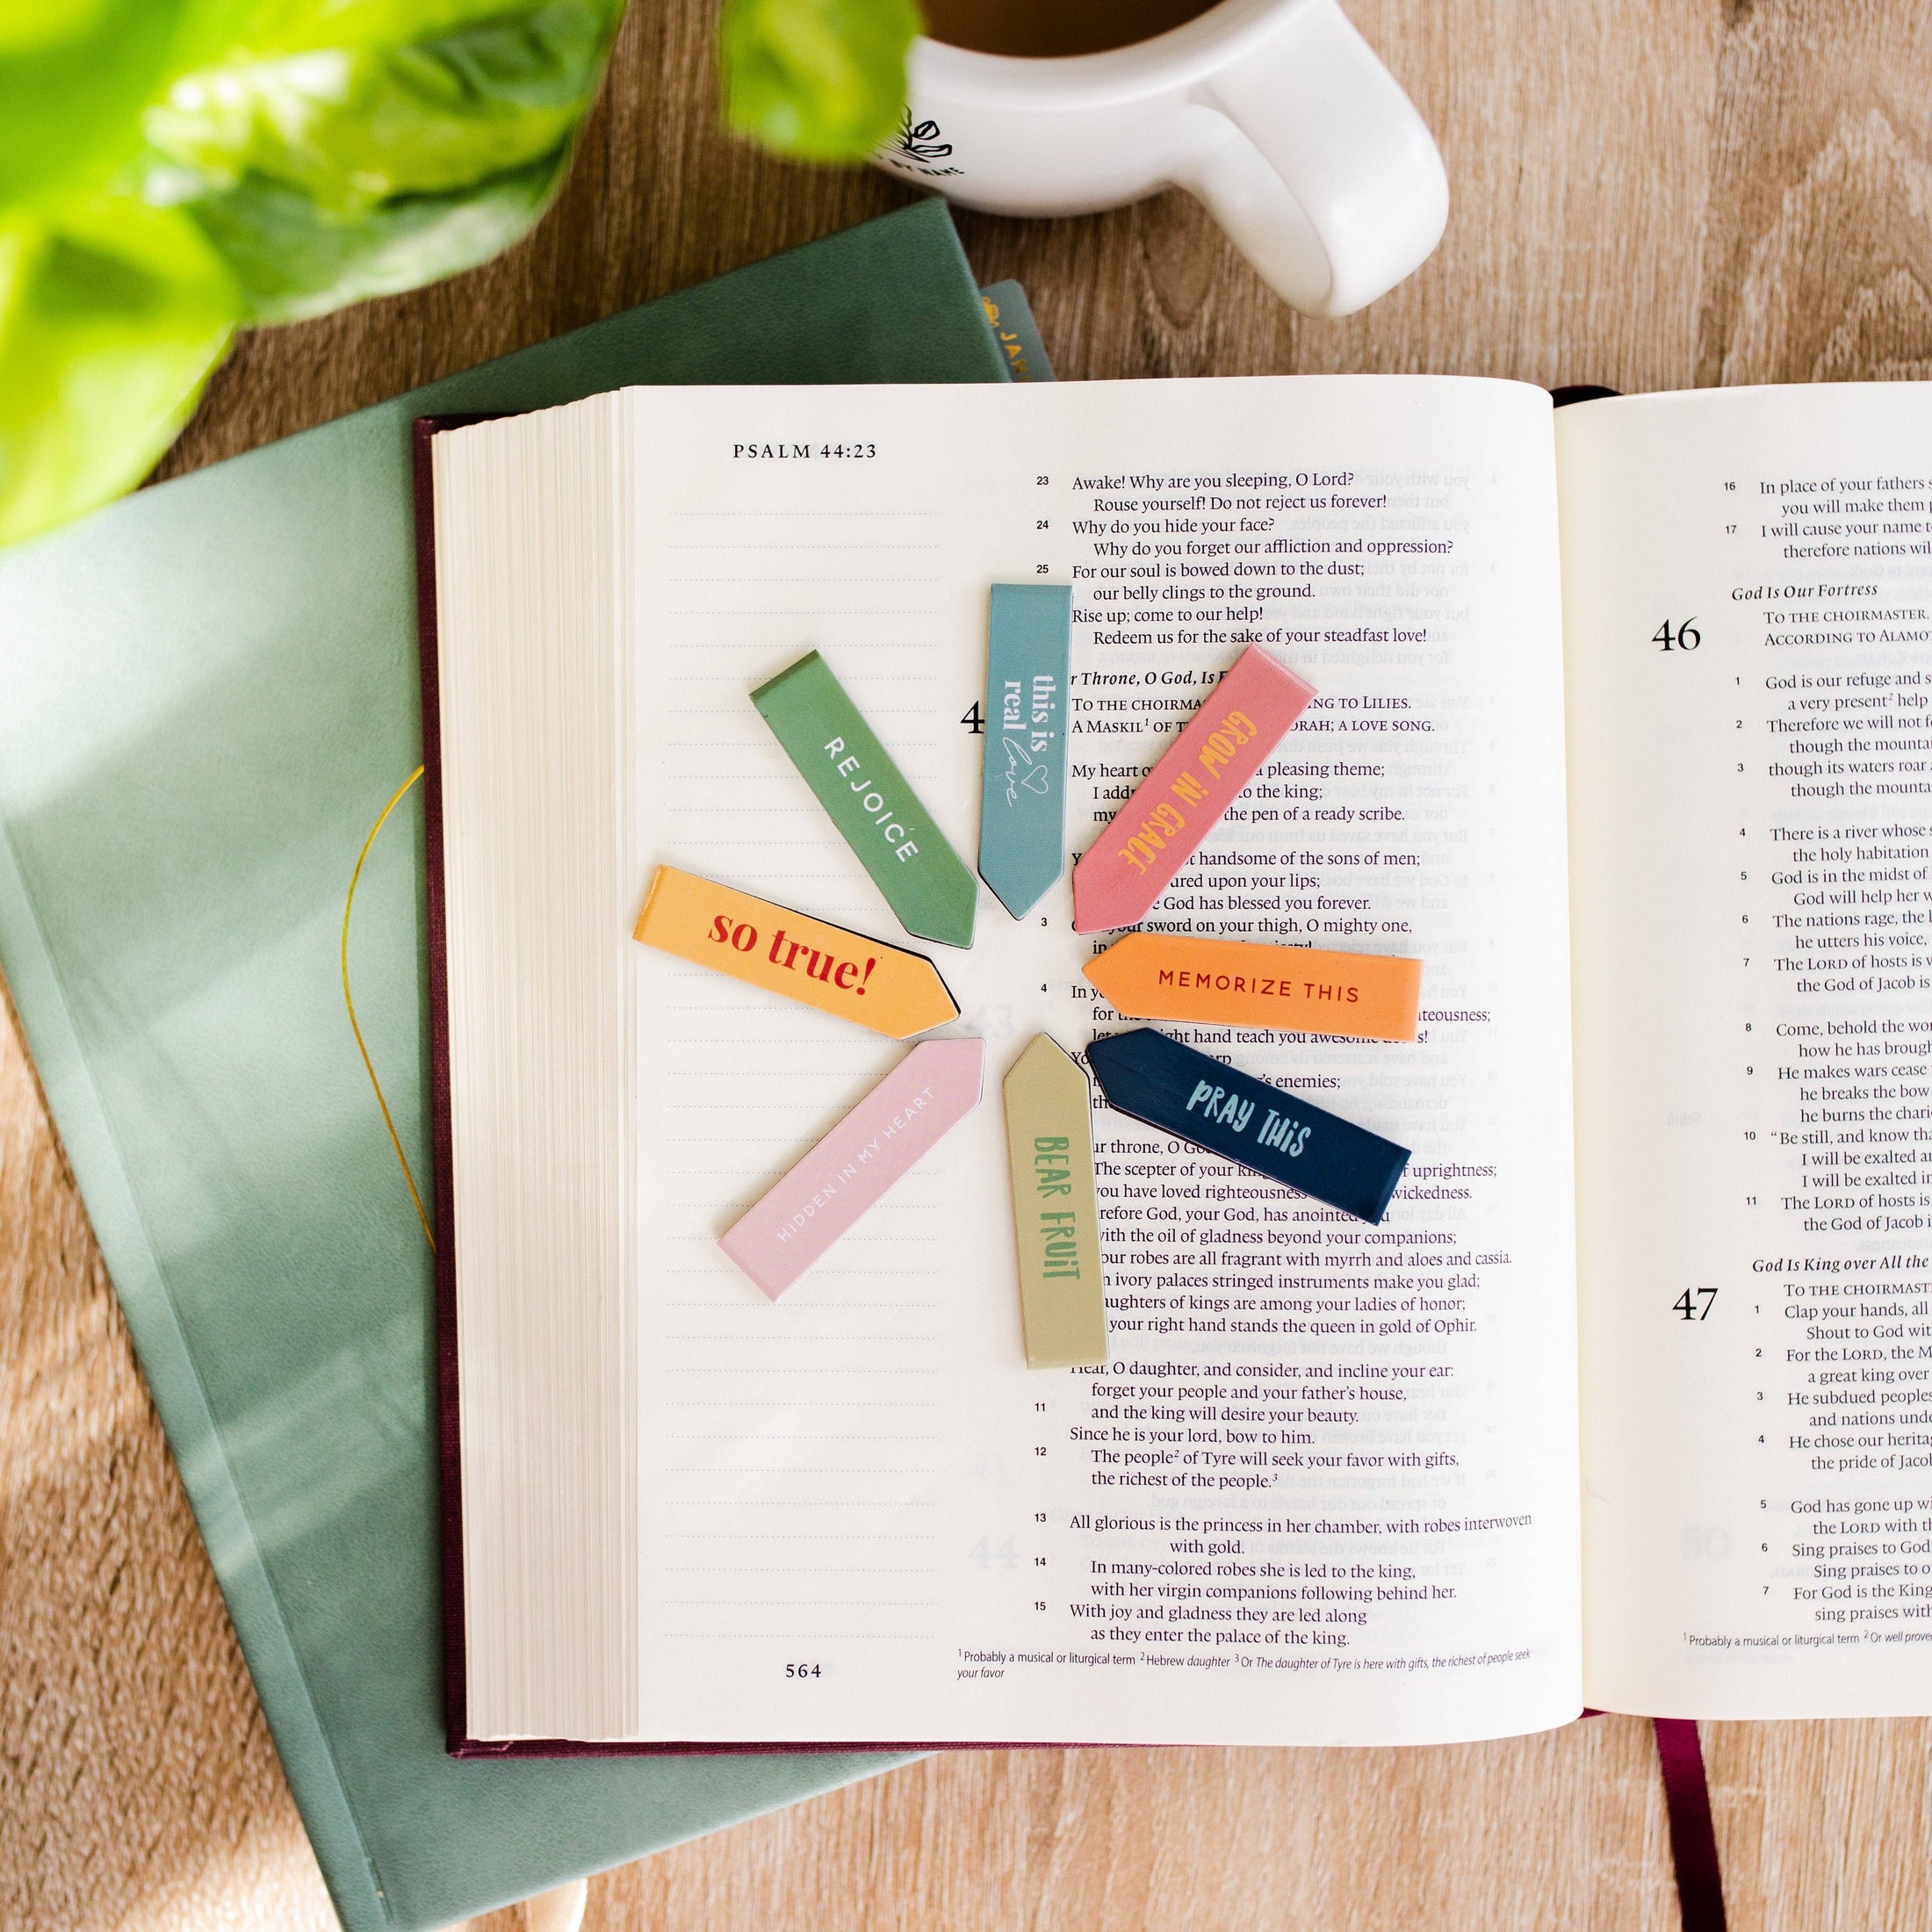 BY NAME
PSALM 44:23
23 Awake! Why are you sleeping, O Lord?
Rouse yourself! Do not reject us forever!
24 Why do you hide your face?
Why do you forget our affliction and oppression?
25 For our soul is bowed down to the dust;
our belly clings to the ground.
Rise up; come to our help!
Redeem us for the sake of your steadfast love!
Throne, O God, Is
TO THE CHOIRMA TO LILIES.
A MASKIL¹ OF A LOVE SONG.
My heart pleasing theme;
I to the king;
my the pen of a ready scribe.
handsome of the sons of men;
upon your lips;
God has blessed you forever.
3 your sword on your thigh, O mighty one,
in
4 In
for
let right hand teach you awesome
enemies;
throne, O
The scepter of your uprightness;
you have loved righteousness wickedness.
God, your God, has anointed
with the oil of gladness beyond your companions;
your robes are all fragrant with myrrh and aloes and cassia.
ivory palaces stringed instruments make you glad;
daughters of kings are among your ladies of honor;
your right hand stands the queen in gold of Ophir.
Hear, O daughter, and consider, and incline your ear:
forget your people and your father's house,
11 and the king will desire your beauty.
Since he is your lord, bow to him.
12 The people² of Tyre will seek your favor with gifts,
the richest of the people.³
13 All glorious is the princess in her chamber, with robes interwoven
with gold.
14 In many-colored robes she is led to the king,
with her virgin companions following behind her.
15 With joy and gladness they are led along
as they enter the palace of the king.
¹ Probably a musical or liturgical term ² Hebrew daughter ³ Or The daughter of Tyre is here with gifts, the richest of people seek
your favor
564
REJOICE
this is
real love
GROW IN GRACE
so true!
MEMORIZE THIS
HIDDEN IN MY HEART
BEAR FRUIT
PRAY THIS
16 In place of your fathers
you will make them
17 I will cause your name
therefore nations
God Is Our Fortress
46 TO THE CHOIRMASTER.
ACCORDING TO
1 God is our refuge and
a very present² help
2 Therefore we will not
though the
3 though its waters roar
though the
4 There is a river whose
the holy habitation
5 God is in the midst of
God will help her
6 The nations rage, the
he utters his voice,
7 The LORD of hosts is
the God of Jacob is
8 Come, behold the
how he has
9 He makes wars cease
he breaks the bow
he burns the
10 "Be still, and know
I will be exalted
I will be exalted
11 The LORD of hosts is
the God of Jacob
God Is King over All the
47 TO THE
1 Clap your hands, all
Shout to God
2 For the LORD, the
a great king over
3 He subdued peoples
and nations
4 He chose our
the pride of
5 God has gone up
the LORD with
6 Sing praises to God
Sing praises to
7 For God is the King
sing praises with
¹ Probably a musical or liturgical term ² Or well